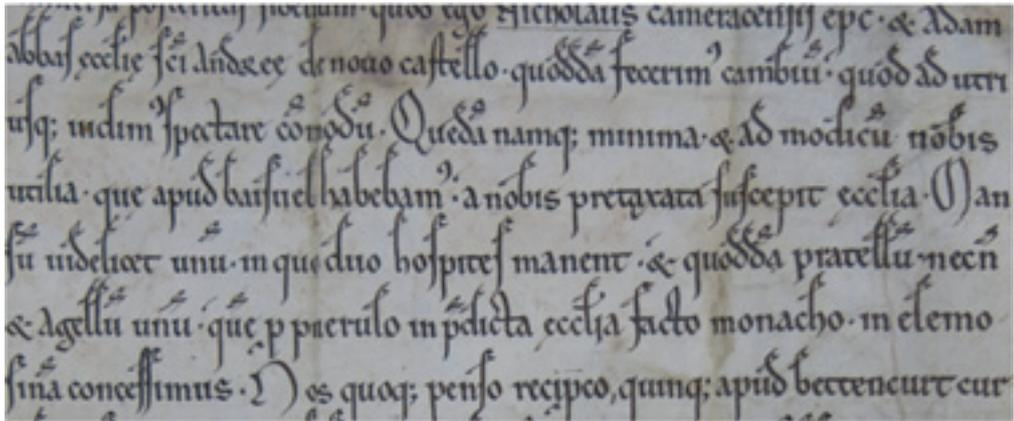 posteritati fidelium · quod ego Nicholaus cameracensis epc · & Adam
abbas ecclie sci Andree de nouo castello · quodda fecerim' cambiu · quod ad utri
usq; inclim' spectare comodu · Queda namq; minima · & ad modicu nobis
utilia · que apud baisuel habebam' · a nobis pretaxata suscepit ecclia · Man
su uidelicet unu · in que duo hospites manent · & quodda pratellu necn
& agellu unu · que p pierulo in pdicta ecclia facto monacho · in elemo
sina concessimus · Nos quoq; penso recipco, quinq; apud bettencurt cur